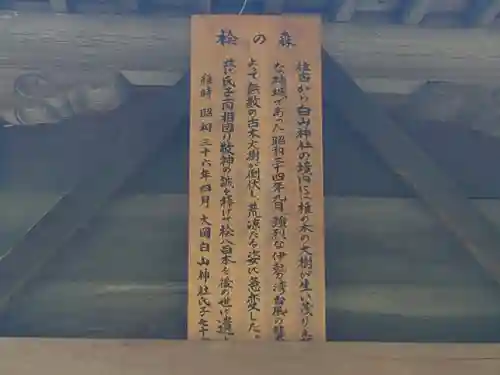 森の桧
往古から白山神社の境内に椎の木の大樹が生い茂り
な境域であった昭和三十四年九月強烈な伊勢湾台風の
よって無数の古木大樹が倒伏し荒凉たる姿に急変した。
故に氏子一同相図り敬神の誠を捧げ桧八百本を後の世に遺
維時 昭和三十六年四月 大岡白山神社氏子